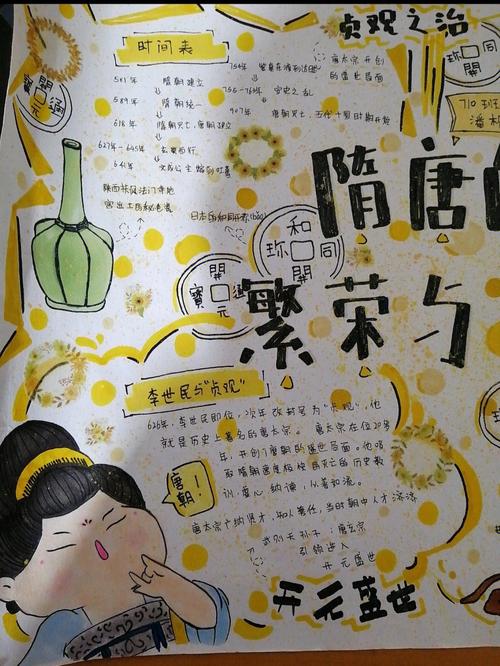 贞观之治
时间表
581年 隋朝建立
589年 隋朝统一
618年 隋朝灭亡,唐朝建立
627年-645年 玄奘西行
641年 文成公主嫁到吐蕃
754年
755-763年 安史之乱
907年 唐朝灭亡,五代十国时期开始
唐太宗开创
的盛世局面
710班
開
元
通
寶
陕西扶风法门寺地
宫出土的秘色瓷
日本的和同开珎
和
同
開
珎
開
元
通
寶
隋唐
繁荣与
李世民与"贞观"
626年,李世民即位,次年改年号为"贞观",他
就是历史上著名的唐太宗。唐太宗在位20多
年,开创了唐朝的盛世局面。他吸
取隋朝速度极快灭亡的历史教
训,虚心纳谏,从善如流。
唐太宗广纳贤才,知人善任,当时朝中人才济济
武则天孙子:唐玄宗
引领进入
开元盛世
唐朝!
开元盛世